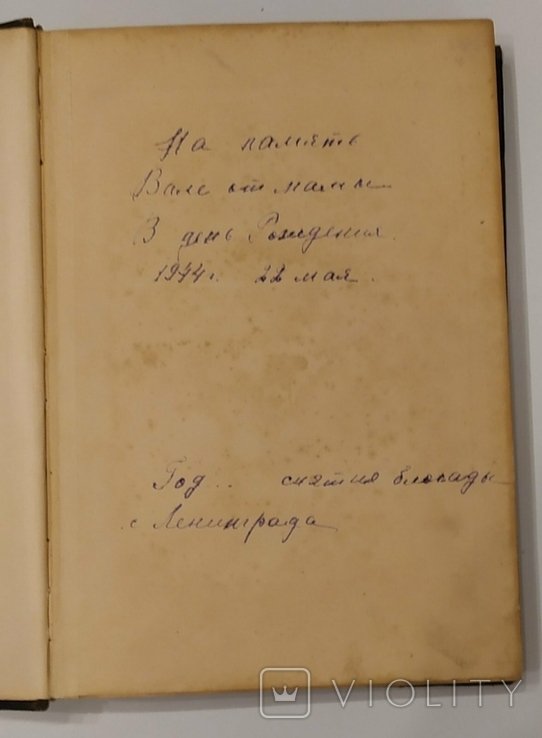 На память
Вале от мамы
В день Рождения.
1944 г. 22 мая.
Год .. снятия блокады
с Ленинграда
VIOLITY